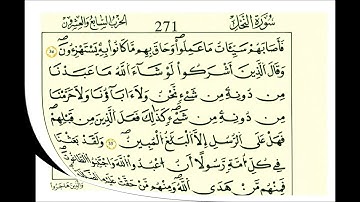 سُورَةُ النَّحْلِ 271 الحزب السابع والعشرون
فَأَصَابَهُمْ سَيِّـَٔاتُ مَا عَمِلُوا۟ وَحَاقَ بِهِم مَّا كَانُوا۟ بِهِۦ يَسْتَهْزِءُونَ ٣٤
وَقَالَ ٱلَّذِينَ أَشْرَكُوا۟ لَوْ شَآءَ ٱللَّهُ مَا عَبَدْنَا
مِن دُونِهِۦ مِن شَىْءٍ نَّحْنُ وَلَآ ءَابَآؤُنَا وَلَا حَرَّمْنَا
مِن دُونِهِۦ مِن شَىْءٍ كَذَٰلِكَ فَعَلَ ٱلَّذِينَ مِن قَبْلِهِمْ
فَهَلْ عَلَى ٱلرُّسُلِ إِلَّا ٱلْبَلَٰغُ ٱلْمُبِينُ ٣٥ وَلَقَدْ بَعَثْنَا
فِى كُلِّ أُمَّةٍ رَّسُولًا أَنِ ٱعْبُدُوا۟ ٱللَّهَ وَٱجْتَنِبُوا۟ ٱلطَّٰغُوتَ
فَمِنْهُم مَّنْ هَدَى ٱللَّهُ وَمِنْهُم مَّنْ حَقَّتْ عَلَيْهِ
وَالَّذِينَ هَاجَرُوا